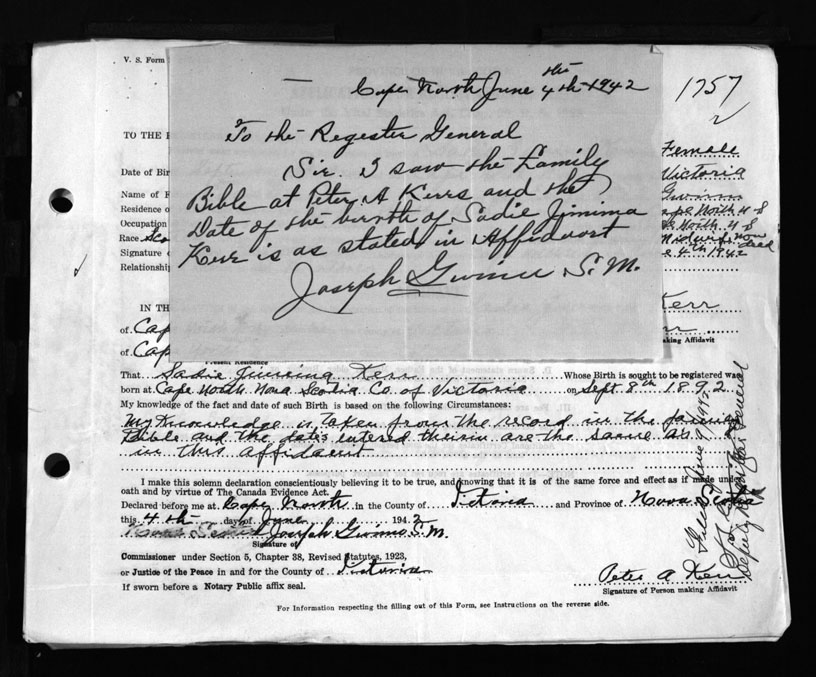 V. S. Form
Cape North June 4th 1942
1757
To the Regester General
TO THE
Female
Sir. I saw the Family
Date of Bir
Victoria
Bible at Peter A Kerrs and the
Name of F
Date of the birth of Sadie Jimima
Residence o
Cape North N S
Kerr is as stated in Affidavort
Occupation
North. N S
Race Sco
Midwife now dead
Signature
4th 1942
Relationship
Joseph S. M.
IN TH
Kerr
of Cap
aking Affidavit
of Cap
Present Residence
That Sadie Kerr Whose Birth is sought to be registered was
born at Cape North Nova Scotia Co of Victoria on Sept 8th 1892
My knowledge of the fact and date of such Birth is based on the following Circumstances:
My Knowledge is taken from the record in the family
Bible and the dates entered therein are the same as
in this affidavit
I make this solemn declaration conscientiously believing it to be true, and knowing that it is of the same force and effect as if made under
oath and by virtue of The Canada Evidence Act.
Declared before me at Cape North in the County of Victoria and Province of Nova Scotia
this 4th day of June 1942
Joseph S. M.
Signature of
Commissioner under Section 5, Chapter 38, Revised Statutes, 1923,
or Justice of the Peace in and for the County of Victoria
Peter A Kerr
If sworn before a Notary Public affix seal.
Signature of Person making Affidavit
For Information respecting the filling out of this Form, see Instructions on the reverse side.
Filed June 9 1942
Deputy Registrar General